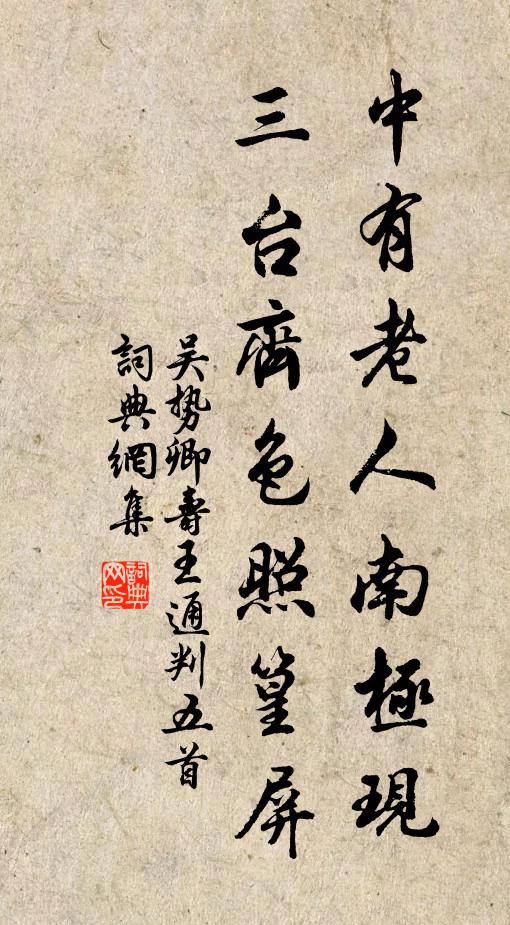 中有老人南極現
三台齊色照篁屏
吴势卿壽王通判五首
詞典網集
詞典
网印